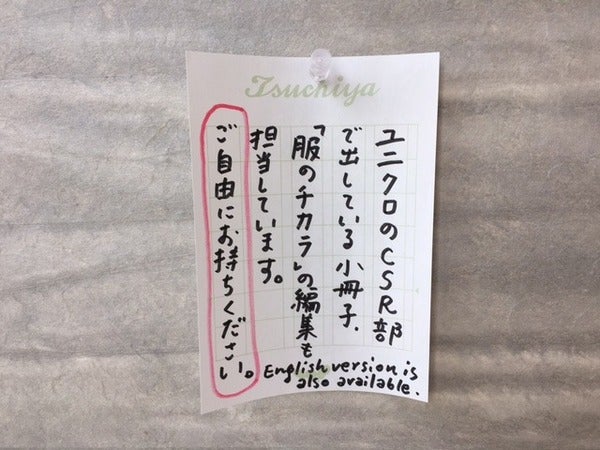 Tsuchiya
ユニクロのCSR部
で出している小冊子、
「服のチカラ」の編集も
担当しています。
ご自由にお持ちください。
English version is
also available.